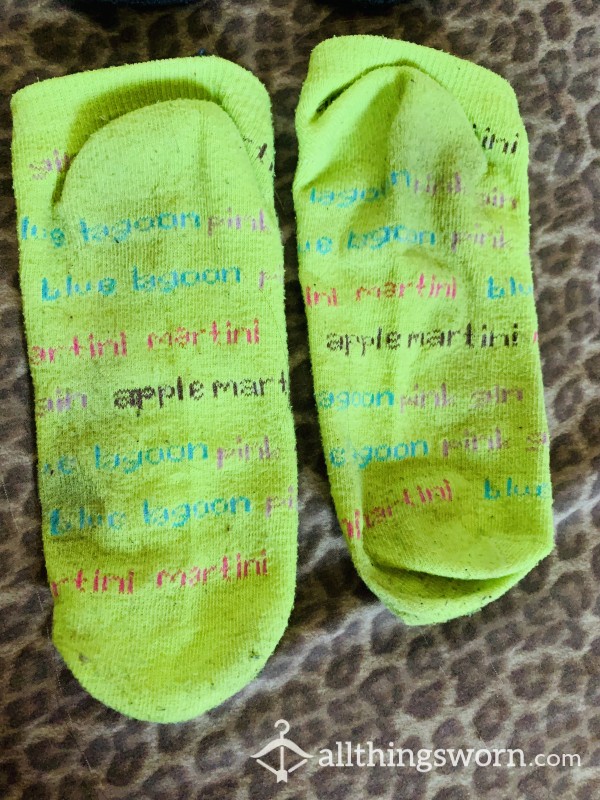 gin
blue lagoon pink
blue lagoon p
artini martini
gin apple mart
ue lagoon pink
blue lagoon pi
rtini martini
ini
lagoon pink gin
ue lagoon pink
ini martini blu
apple martini
agoon pink gin
e lagoon pink
martini blue
allthingsworn.com